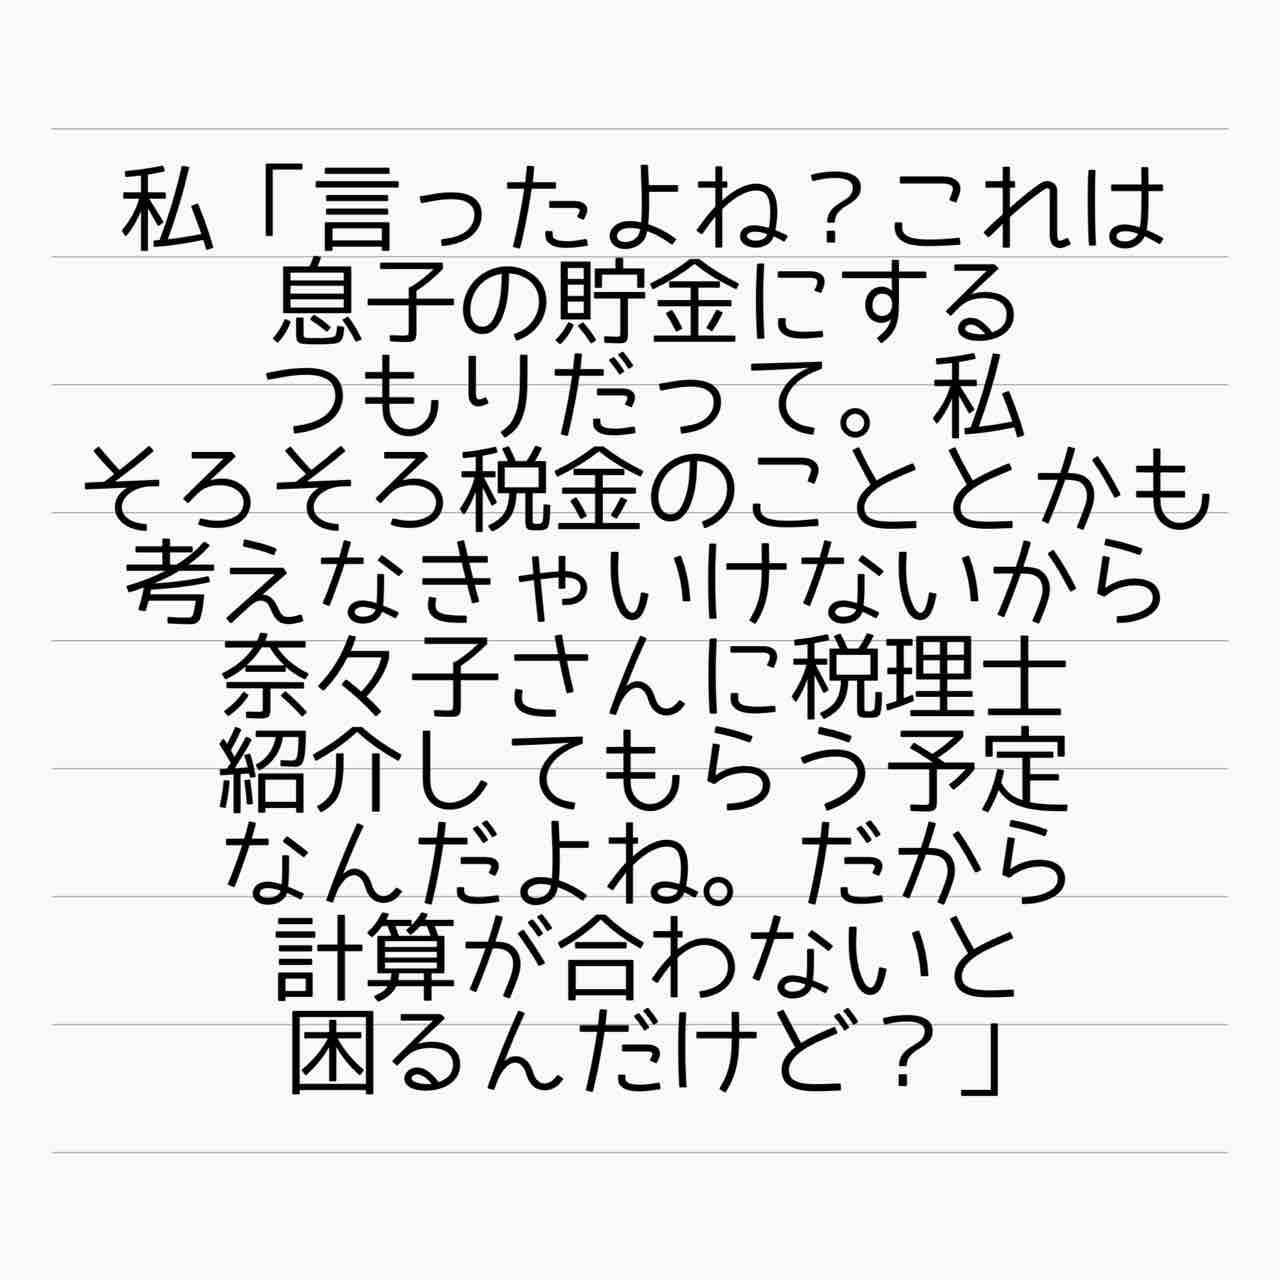 私「言ったよね？これは
息子の貯金にする
つもりだって。私
そろそろ税金のこととかも
考えなきゃいけないから
奈々子さんに税理士
紹介してもらう予定
なんだよね。だから
計算が合わないと
困るんだけど？」